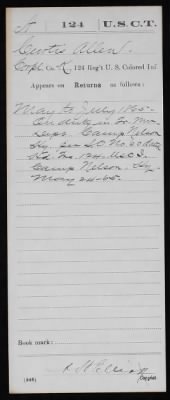 A 124 U.S.C.T.
Curtis Allen.
Corpl Co. K, 124 Reg't U. S. Colored Inf
Appears on Returns as follows:
May to July 1865.
On duty in Qr Mr
Dept. Camp Nelson
Ky. per S.O. No. 20
Hd Qrs 124 U.S.C.I.
Camp Nelson, Ky.
May 24-65.
Book mark:
(546) Copyist.